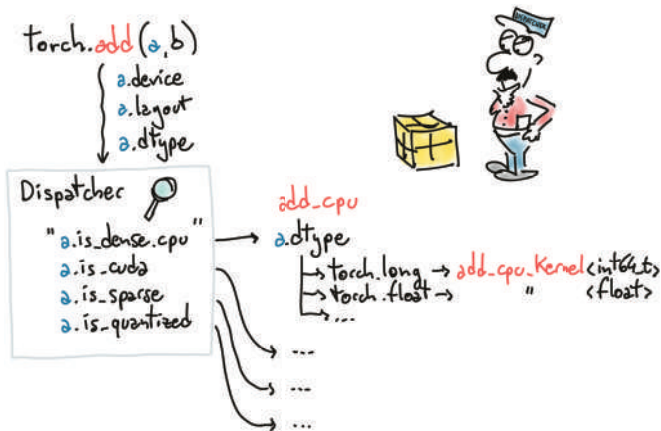 torch.add(a,b)
a.device
a.layout
a.dtype
DISPATCHER
Dispatcher
"a.is_dense.cpu"
a.is_cuda
a.is_sparse
a.is_quantized
add_cpu
a.dtype
torch.long → add_cpu_kernel<int64_t>
torch.float → " <float>
...
...
...
...